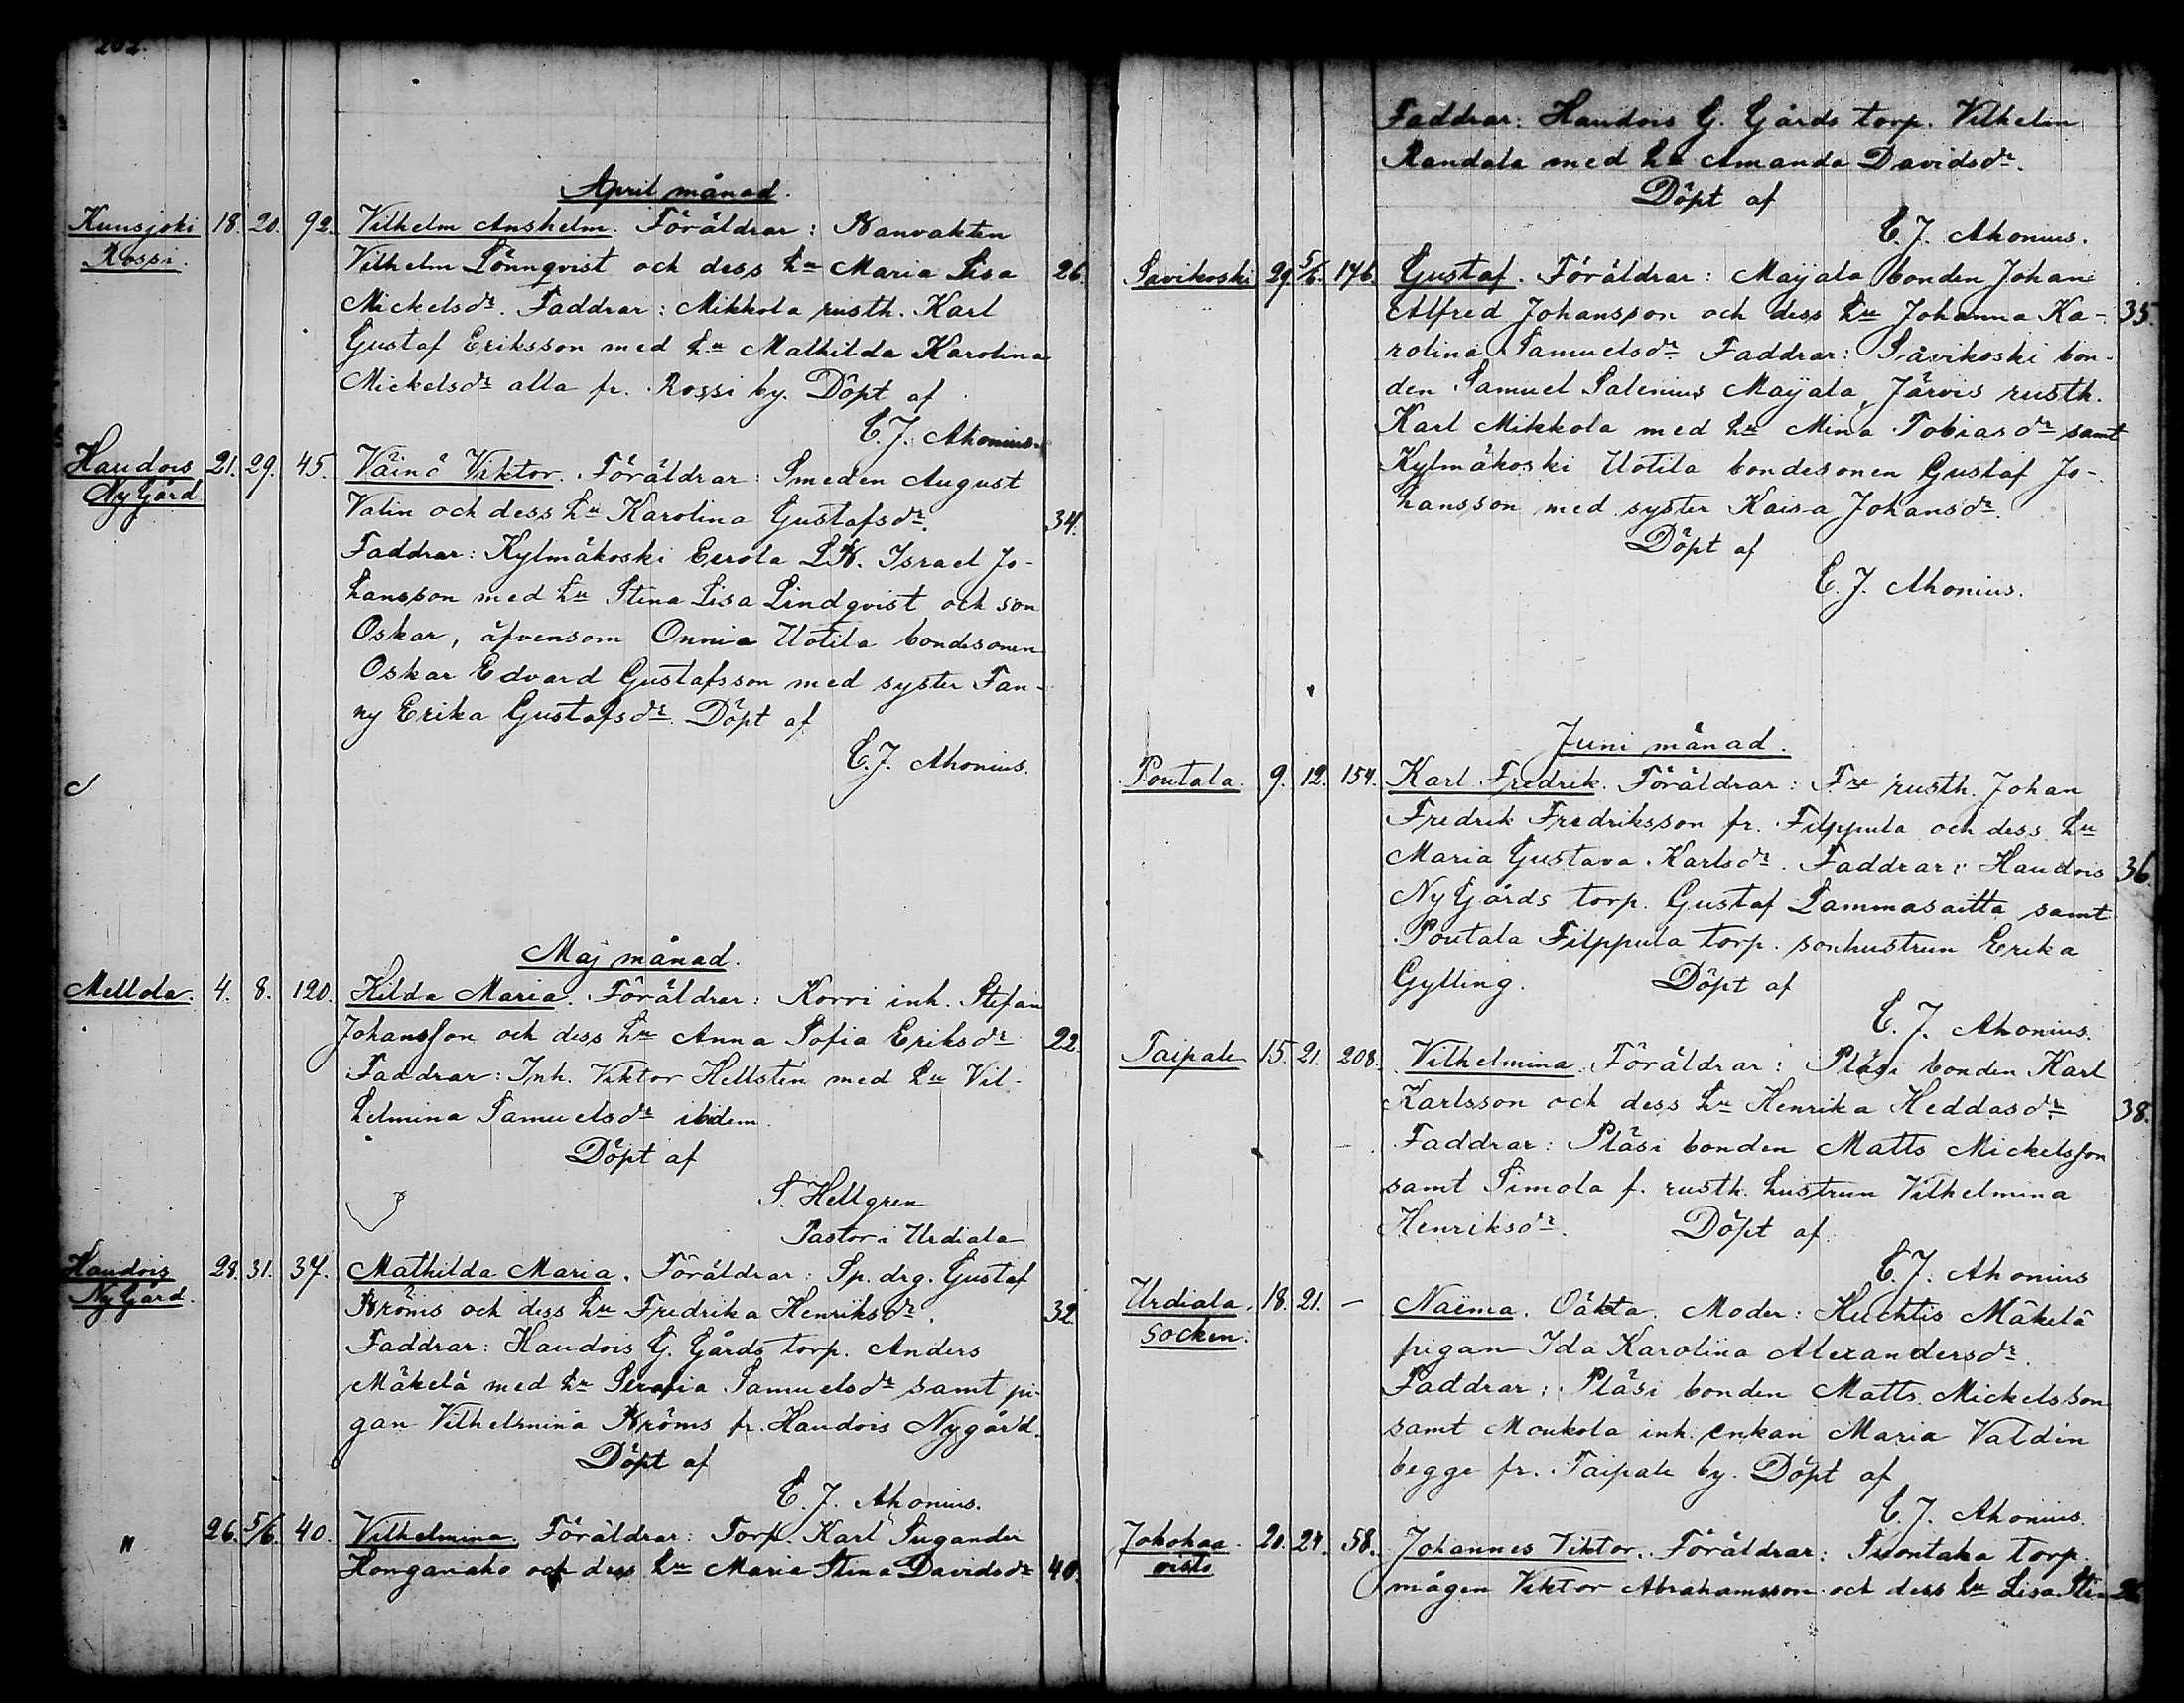 202.
April månad.
Kuusjoki 18. 20. 92. Vilhelm Anshelm. Föräldrar: Banvakten
Rossi. Vilhelm Lönnqvist och dess hu Maria Lisa 26.
Mickelsdr. Faddrar: Mikkola rusth. Karl
Gustaf Eriksson med hu Mathilda Karolina
Mickelsdr alla fr. Rossi by. Döpt af
C. J. Ahonius.
Haudois 21. 29. 45. Väinö Viktor. Föräldrar: Smeden August
Ny Gård Valin och dess hu Karolina Gustafsdr. 34.
Faddrar: Kylmäkoski Eerola Israel Jo-
hansson med hu Stina Lisa Lindqvist och son
Oskar, äfvensom Onnia Uotila bondesonen
Oskar Edvard Gustafsson med syster Fan-
ny Erika Gustafsdr. Döpt af
C. J. Ahonius.
Maj månad.
Mellola. 4. 8. 120. Hilda Maria. Föräldrar: Korri inh. Stefan
Johansson och dess hu Anna Sofia Eriksdr 22.
Faddrar: Inh. Viktor Hellsten med hu Vil-
helmina Samuelsdr ibidem.
Döpt af
S. Hellgren
Pastor i Urdiala
Haudois 28. 31. 37. Mathilda Maria. Föräldrar: Sp. drg. Gustaf
Ny Gård. Bröms och dess hu Fredrika Henriksdr. 32.
Faddrar: Haudois G. Gårds torp. Anders
Mäkelä med hu Serafia Samuelsdr samt pi-
gan Vilhelmina Bröms fr. Haudois Nygård.
Döpt af
C. J. Ahonius.
" 26. 5/6. 40. Vilhelmina. Föräldrar: Torp. Karl Sugander
Honganaho och dess hu Maria Stina Davidsdr 40.
Faddrar: Haudois G. Gårds torp. Vilhelm
Randala med hu Amanda Davidsdr.
Döpt af
C. J. Ahonius.
Savikoski 29. 5/6. 146. Gustaf. Föräldrar: Maijala bonden Johan
Alfred Johansson och dess hu Johanna Ka- 35.
rolina Samuelsdr Faddrar: Savikoski bon-
den Samuel Salenius Maijala, Järvis rusth.
Karl Mikkola med hu Mina Tobiasdr samt
Kylmäkoski Uotila bondesonen Gustaf Jo-
hansson med syster Kaisa Johansdr.
Döpt af
C. J. Ahonius.
Juni månad.
Poutala. 9. 12. 154. Karl Fredrik. Föräldrar: Fre rusth. Johan
Fredrik Fredriksson fr. Filppula och dess hu
Maria Gustava Karlsdr. Faddrar: Haudois 36.
Ny Gårds torp. Gustaf Lammasaitta samt
Poutala Filppula torp. sonhustrun Erika
Gylling. Döpt af
C. J. Ahonius.
Taipale 15. 21. 208. Vilhelmina. Föräldrar: Pläsi bonden Karl
Karlsson och dess hu Henrika Heddasdr. 38.
Faddrar: Pläsi bonden Matts Mickelsson
samt Simola f. rusth. hustrun Vilhelmina
Henriksdr. Döpt af
C. J. Ahonius
Urdiala 18. 21. – Naëma. Oäkta. Moder: Huhtis Mäkelä
socken. pigan Ida Karolina Alexandersdr.
Faddrar: Pläsi bonden Matts Mickelsson
samt Moukola inh. enkan Maria Valdén
begge fr. Taipale by. Döpt af
C. J. Ahonius.
Jokohaa- 20. 24. 58. Johannes Viktor. Föräldrar: Suontaka torp.
oisto mågen Viktor Abrahamsson och dess hu Lisa Sti- 26.